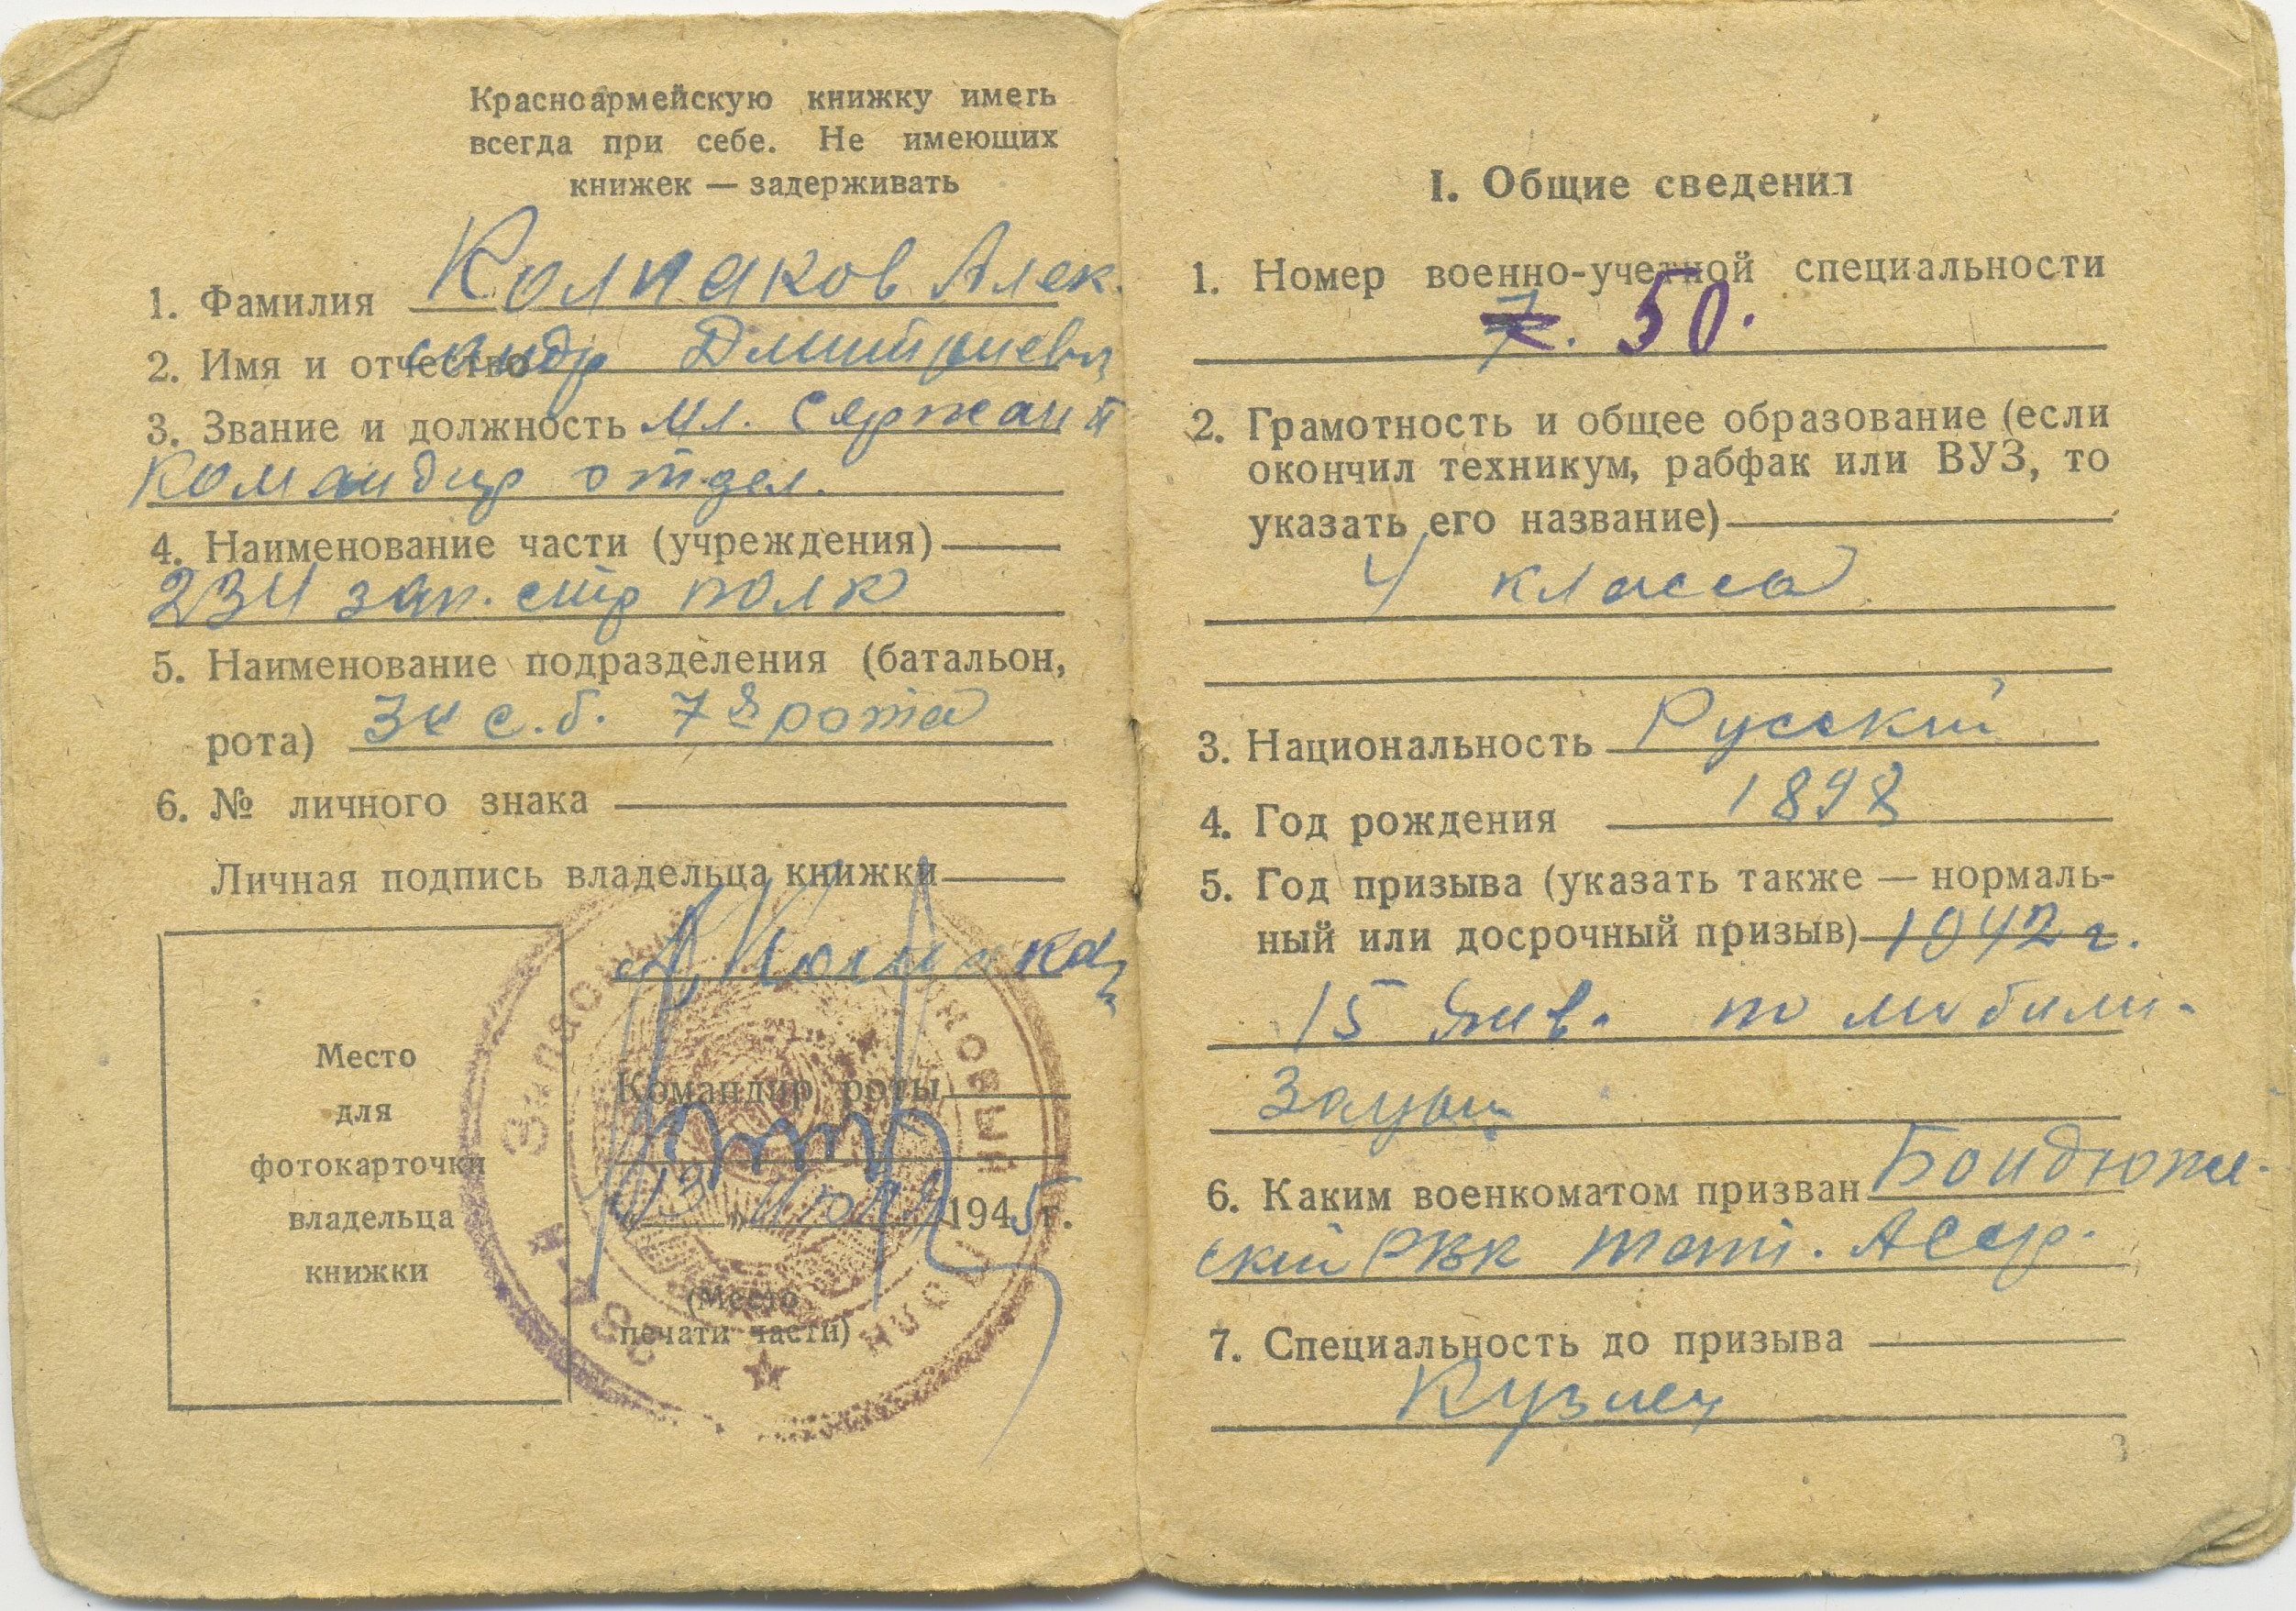 Красноармейскую книжку иметь
всегда при себе. Не имеющих
книжек — задерживать
1. Фамилия Колпаков Алек.
2. Имя и отчество сандр Дмитриев
3. Звание и должность мл. сержант
командир отдел.
4. Наименование части (учреждения)
234 зап. стр полк
5. Наименование подразделения (батальон,
рота) 3й с.б. 7я рота
6. № личного знака
Личная подпись владельца книжки
Место
для
фотокарточки
владельца
книжки
Командир роты
1945 г.
(Место
печати части)
I. Общие сведения
1. Номер военно-учетной специальности
7. 50.
2. Грамотность и общее образование (если
окончил техникум, рабфак или ВУЗ, то
указать его название)
4 класса
3. Национальность Русский
4. Год рождения 1898
5. Год призыва (указать также — нормаль-
ный или досрочный призыв) 1942 г.
15 Янв. по мобили-
зации
6. Каким военкоматом призван Бондюж-
ский РВК Тат. АССР.
7. Специальность до призыва
Кузнец
3